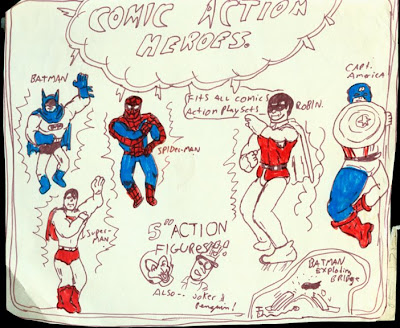 COMIC ACTION
HEROES.
BATMAN
SPIDER-MAN
FITS ALL COMIC
Action Playsets
ROBIN.
CAPT.
America
Super-
MAN
5 ACTION
FIGURES!!
ALSO-- Joker &
Penguin!
BATMAN
Exploding
BRIDGE